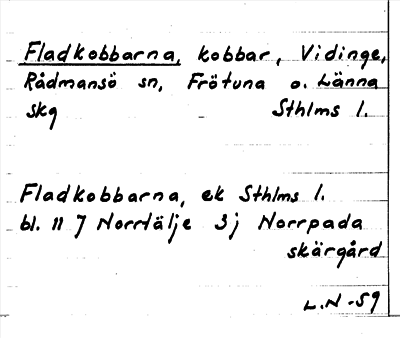 Fladkobbarna, kobbar, Vidinge,
Rådmansö sn, Frötuna o. Länna
skg Sthlms l.
Fladkobbarna, ek Sthlms l.
bl. 11 7 Norrtälje 3j Norrpada
skärgård
L.N -59